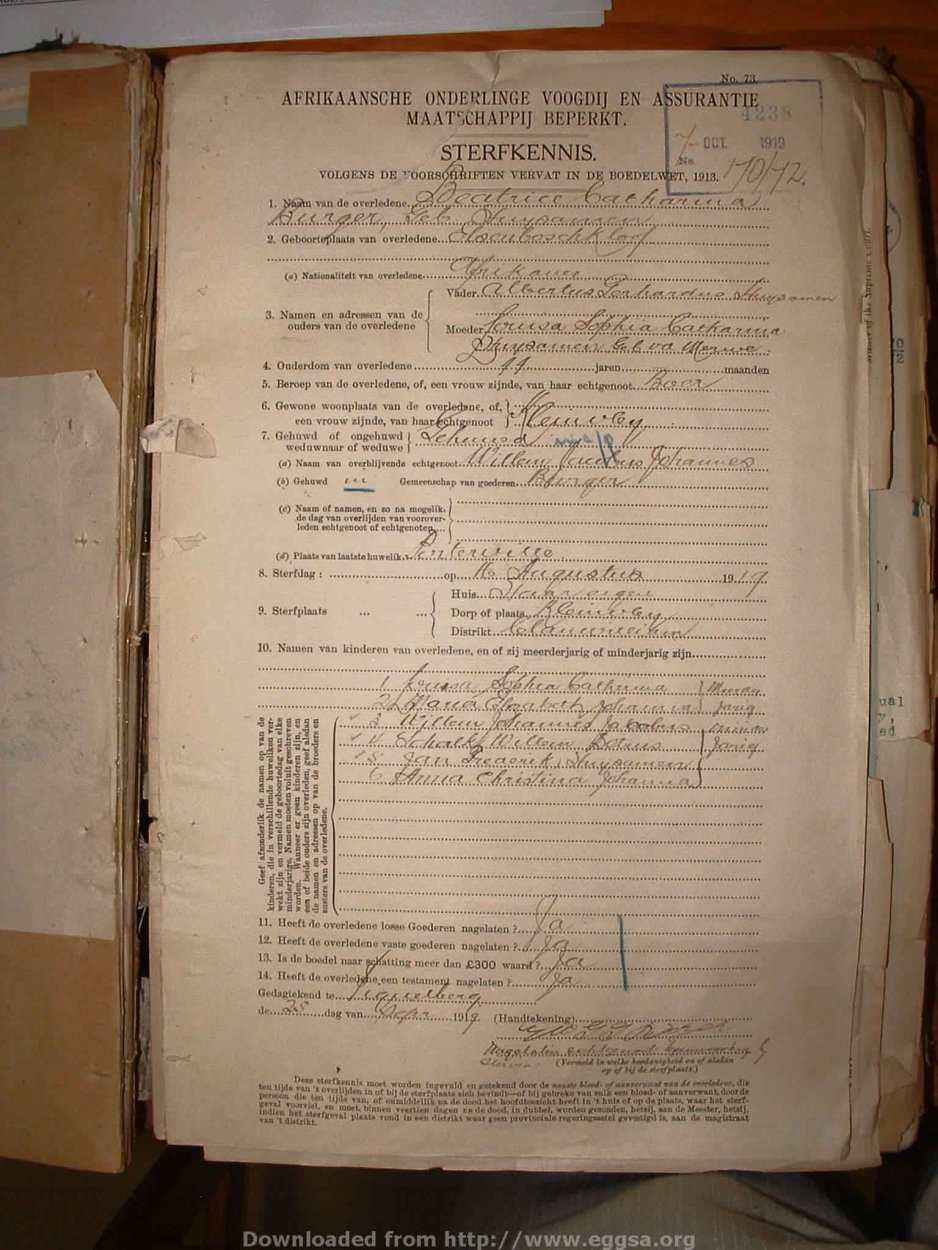 No. 73.
AFRIKAANSCHE ONDERLINGE VOOGDIJ EN ASSURANTIE
MAATSCHAPPIJ BEPERKT.
4238
7- OCT 1919
No. 170/12.
STERFKENNIS.
VOLGENS DE VOORSCHRIFTEN VERVAT IN DE BOEDELWET, 1913.
1. Naam van de overledene. Beatrice Catharina
Burger, Geb. Huysamen
2. Geboorteplaats van overledene.
(a) Nationaliteit van overledene. Afrikaner
Vader. Albertus Gerhardus Huysamen
3. Namen en adressen van de
ouders van de overledene
Moeder Louisa Sophia Catharina
Huysamen Geb. vd Merwe.
4. Ouderdom van overledene 44 jaren maanden
5. Beroep van de overledene, of, een vrouw zijnde, van haar echtgenoot. Boer
6. Gewone woonplaats van de overledene, of,
een vrouw zijnde, van haar echtgenoot
7. Gehuwd of ongehuwd
weduwnaar of weduwe
Gehuwd
(a) Naam van overblijvende echtgenoot. Willem Jacobus Johannes
(b) Gehuwd in Gemeenschap van goederen. Burger
(c) Naam of namen, en zo na mogelik,
de dag van overlijden van voorover-
leden echtgenoot of echtgenoten
(d) Plaats van laatste huwelik. Porterville
8. Sterfdag: op 16 Augustus 1919
Huis.
9. Sterfplaats
Dorp of plaats.
Distrikt Clanwilliam
10. Namen van kinderen van overledene, en of zij meerderjarig of minderjarig zijn.
1 Louisa Sophia Catharina
2 Maria Elizabeth Johanna
3 Willem Johannes Jacobus
4 Schalk Willem Petrus
5 Jan Frederik Huysamen
6 Anna Christina Johanna
Meerder
jarig
minder
jarig
Geef afzonderlik de namen op van de
kinderen, die in verschillende huweliken ver-
wekt zijn en vermeld de geboortedag van elke
minderjarige. Namen moeten voluit geschreven
worden. Wanneer er geen kinderen zijn, en
een of beide ouders zijn overleden, geef alsdan
de namen en adressen op van de broeders en
zusters van de overledene.
11. Heeft de overledene losse Goederen nagelaten? Ja
12. Heeft de overledene vaste goederen nagelaten? Ja
13. Is de boedel naar schatting meer dan £300 waard? Ja
14. Heeft de overledene een testament nagelaten? Ja
Gedagtekend te Piquetberg
de 25 dag van Septr 1919. (Handtekening)
Nagelaten echtgenoot
(Vermeld in welke hoedanigheid en of alsdan
op of bij de sterfplaats.)
Deze sterfkennis moet worden ingevuld en getekend door de naaste bloed- of aanverwant van de overledene, die
ten tijde van 't overlijden in of bij de sterfplaats zich bevindt—of bij gebreke van zulk een bloed- of aanverwant, door de
persoon die ten tijde van, of onmiddellik na de dood het hoofdtoezicht heeft in 't huis of op de plaats, waar het sterf-
geval voorviel, en moet, binnen veertien dagen na de dood, in dubbel, worden gezonden, hetzij, aan de Meester, hetzij,
indien het sterfgeval plaats vond in een distrikt waar geen provinciale regeringszetel gevestigd is, aan de magistraat
van 't distrikt.
Downloaded from http://www.eggsa.org